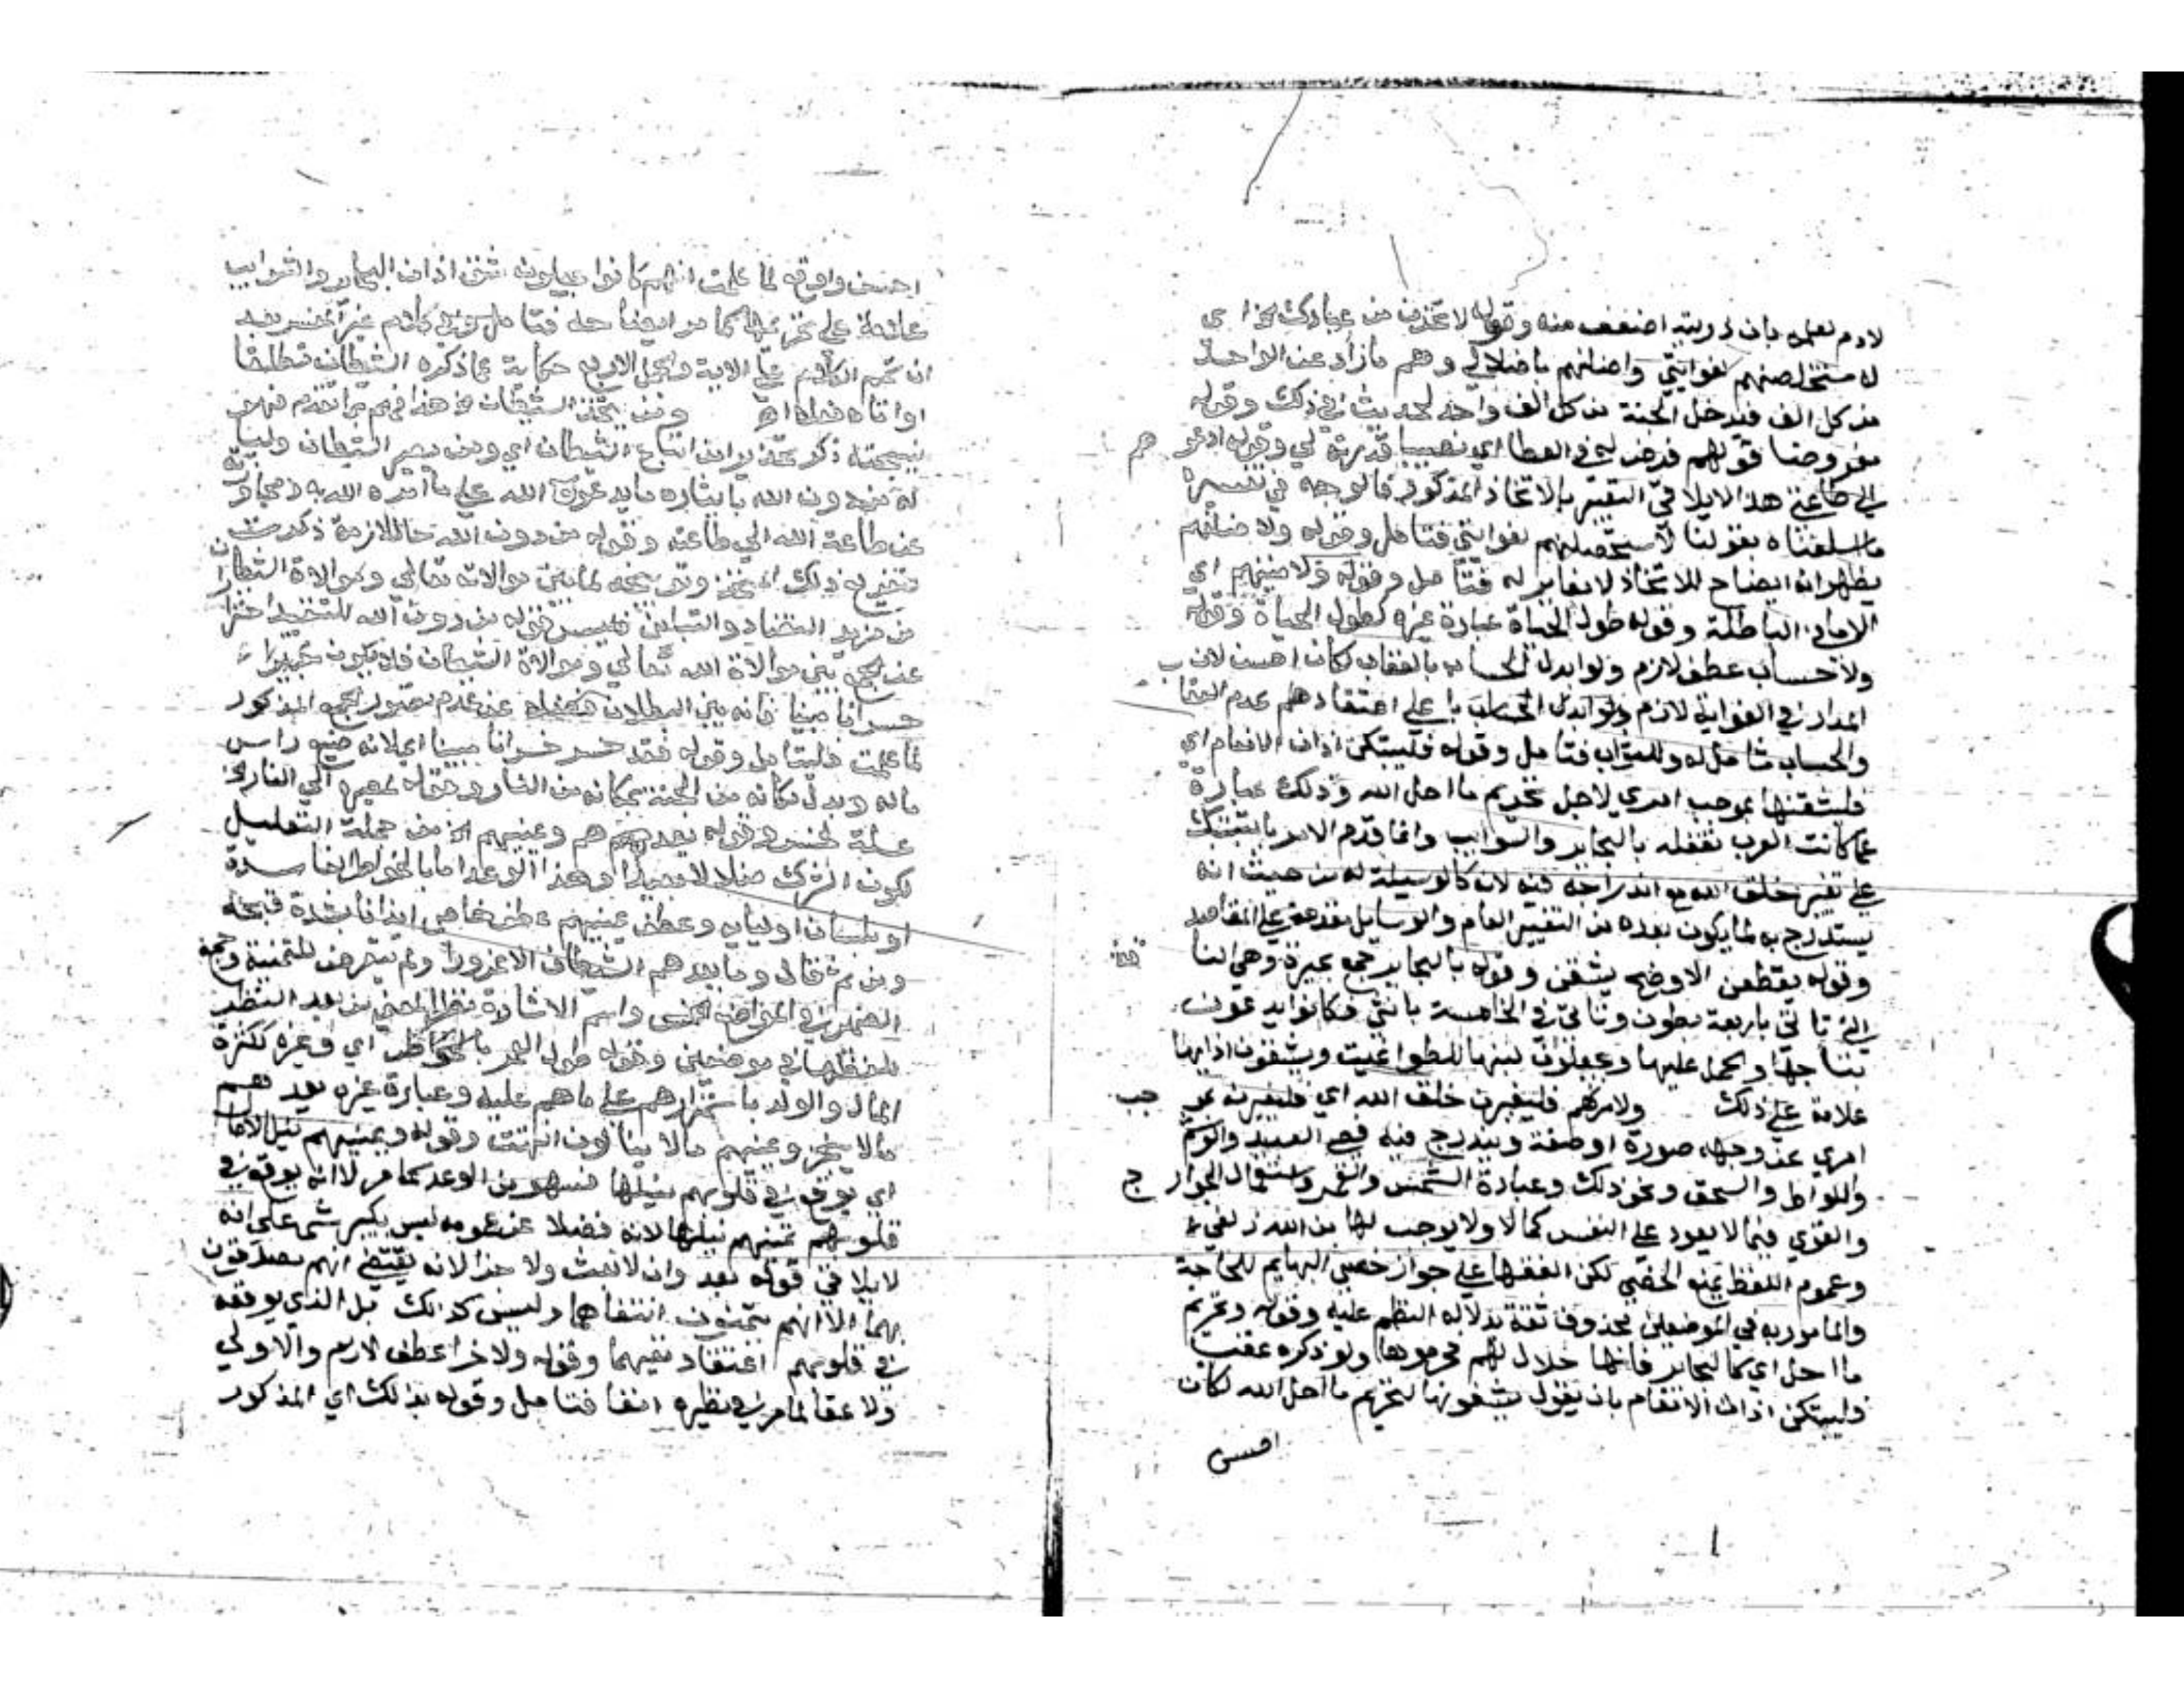 لادم لعلمه بان ذريته اضعف منه وقوله لاتخذن من عبادك
له مستخلصنهم لغوايتي واضلنهم باضلالي وهم مازاد عن الواحد
من كل الف فيدخل الجنة من كل الف واحد لحديث في ذلك وقوله
مفروضا قولهم فرض له في العطا اي نصيبا قدرته لي وقوله ادعوهم
الي طاعتي هذا لا يلاقي التفسير بالاتخاذ المذكور فالوجه في تفسير
ما اسلفناه بقولنا لغوايتي فتامل وقوله ولاضلنهم
يظهر انه ايضاح للاتخاذ لا مغاير له فتامل وقوله ولامنينهم اي
الاماني الباطلة وقوله طول الحياة عبارة غيره كطول الحياة وقوله
ولا حساب عطف لازم ولو ابدل الحساب بالعقاب لكان احسن لان
المدار في الغواية لازم ولو ابدل الحساب علي اعتقادهم عدم العقاب
والحساب شامل له وللثواب فتامل وقوله فليبتكن اذان الانعام اي
فليشقنها بموجب امري لاجل تحريم ما احل الله وذلك عبارة
عما كانت العرب تفعله بالبحاير والسوايب وانما قدم الامر بالتبتيك
علي تغيير خلق الله مع اندراجه فيه لانه كالوسيلة له من حيث انه
يستدرج به لما يكون بعده من التغيير العام والوسايل مقدمة علي المقاصد
وقوله يقطعن الاوضح يشقن وقوله بالبحاير جمع بحيرة وهي
التي تاتي باربعة بطون وتاتي في الخامسة بانثي فكانوا يدعون
نتاجها والحمل عليها ويجعلون لبنها للطواغيت ويشقون اذانها
علامة علي ذلك ولامرنهم فليغيرن خلق الله اي فليغيرنه
امري عن وجهه صورة او صفة ويندرج فيه العبيد والوشم
واللواط والسحق ونحو ذلك وعبادة الشمس والقمر واستعمال الجوارح
والقوي فيما لا يعود علي النفس كمالا ولا يوجب لها من الله زلفي
وعموم اللفظ يمنع الخصي لكن الفقها علي جواز خصي البهايم للحاجة
والمامور به في الموضعين محذوف ثقة بدلالة النظم عليه وقوله وتحريم
ما احل اي كالبحاير فانها حلال لهم فحرموها ولو ذكره عقب
فليبتكن اذان الانعام بان يقول يشقونها لتحريم ما احل الله لكان
احسن
احسن واوقع لما علمت انهم كانوا يجعلون شق اذان البحاير والسوايب
علامة علي تحريمها كما مر ايضا
ان الاية والجمل الاربع حكاية عما ذكره الشيطان
ومن يتخذ الشيطان
نتيجته ذكر تحذيرا من اتباع الشيطان اي ومن يصير الشيطان وليا
له من دون الله بايثاره ما يدعوه الله علي ما امره الله به ومجاوزته
عن طاعة الله الي طاعته وقوله من دون الله حال لازمة ذكرت
ذلك المتخذ وتوبيخه لما بين موالاته تعالي وموالاة الشيطان
من مزيد التضاد والتباين فليس قوله من دون الله للتقييد احترازا
عن الجمع بين موالاة الله تعالي وموالاة الشيطان فلا يكون
خسرانا مبينا فانه بين البطلان فضلا عن عدم تصور الجمع المذكور
لما علمت فليتامل وقوله فقد خسر خسرانا مبينا اي لانه ضيع راس
ماله وبدل مكانه من الجنة بمكانه من النار وقوله لمصيره الي النار
علة لخسر وقوله يعدهم ويمنيهم الخ من جملة التعليل
لكون الشرك ضلالا بعيدا وهذا الوعد اما بالخواطر الفاسدة
او بلسان اوليايه وعطف يمنيهم عطف خاص ايذانا بشدة قبحه
ومن ثم قال وما يعدهم الشيطان الا غرورا ولم يتعرض للتمنية وجمع
الضمير في المواضع الخمس واسم الاشارة نظرا للمعني من بعد النظر
للفظها في موضعين وقوله طول العمر بالخواطر اي وغيره ككثرة
المال والولد باستمرارهم علي ما هم عليه وعبارة غيره يعدهم
مالا ينجز ويمنيهم مالا ينالون انتهت وقوله ويمنيهم نيل الامال
اي يوقع في قلوبهم نيلها فهو من الوعد كما مر لا انه يوقع في
قلوبهم تمنيهم نيلها لانه فضلا عن عمومه ليس بكبير شي علي انه
لا يلاقي قوله بعد وان لا بعث ولا جزا لانه يقتضي انهم يصدقون
بهما الا انهم يتمنون انتفاهما وليس كذلك بل الذي يوقعه
في قلوبهم اعتقاد نفيهما وقوله ولا جزا عطف لازم والاولي
ولا عقاب لما مر في نظيره انفا فتامل وقوله بذلك اي المذكور